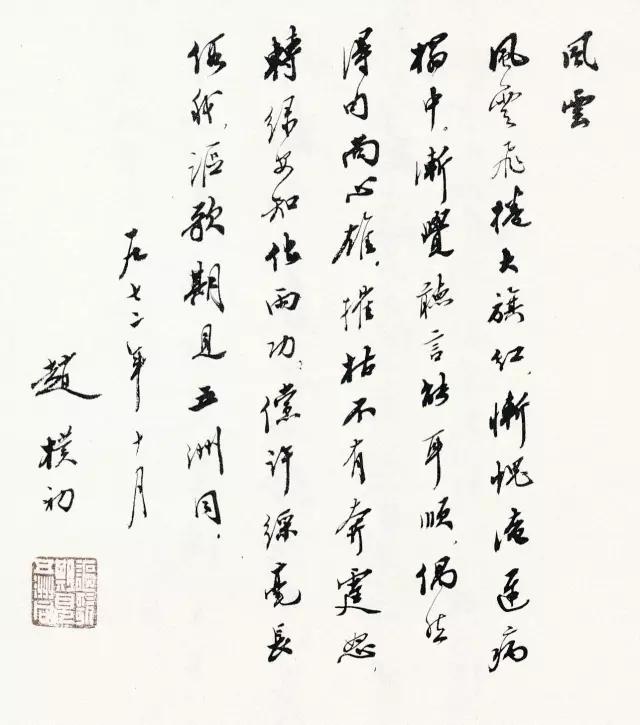 風雲
風雲飛捲大旗紅,慚愧淹遲病
榻中。漸覺聽言能耳順,偶然
得句尚心雄。摧枯不有奔霆怒,
轉綠安知化雨功;儻許綵毫長
假我,謳歌期見五洲同。
一九七二年十月
趙樸初